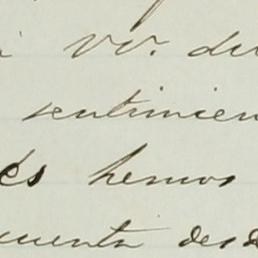 VV. du
sentimien
és hemos
cuenta desd